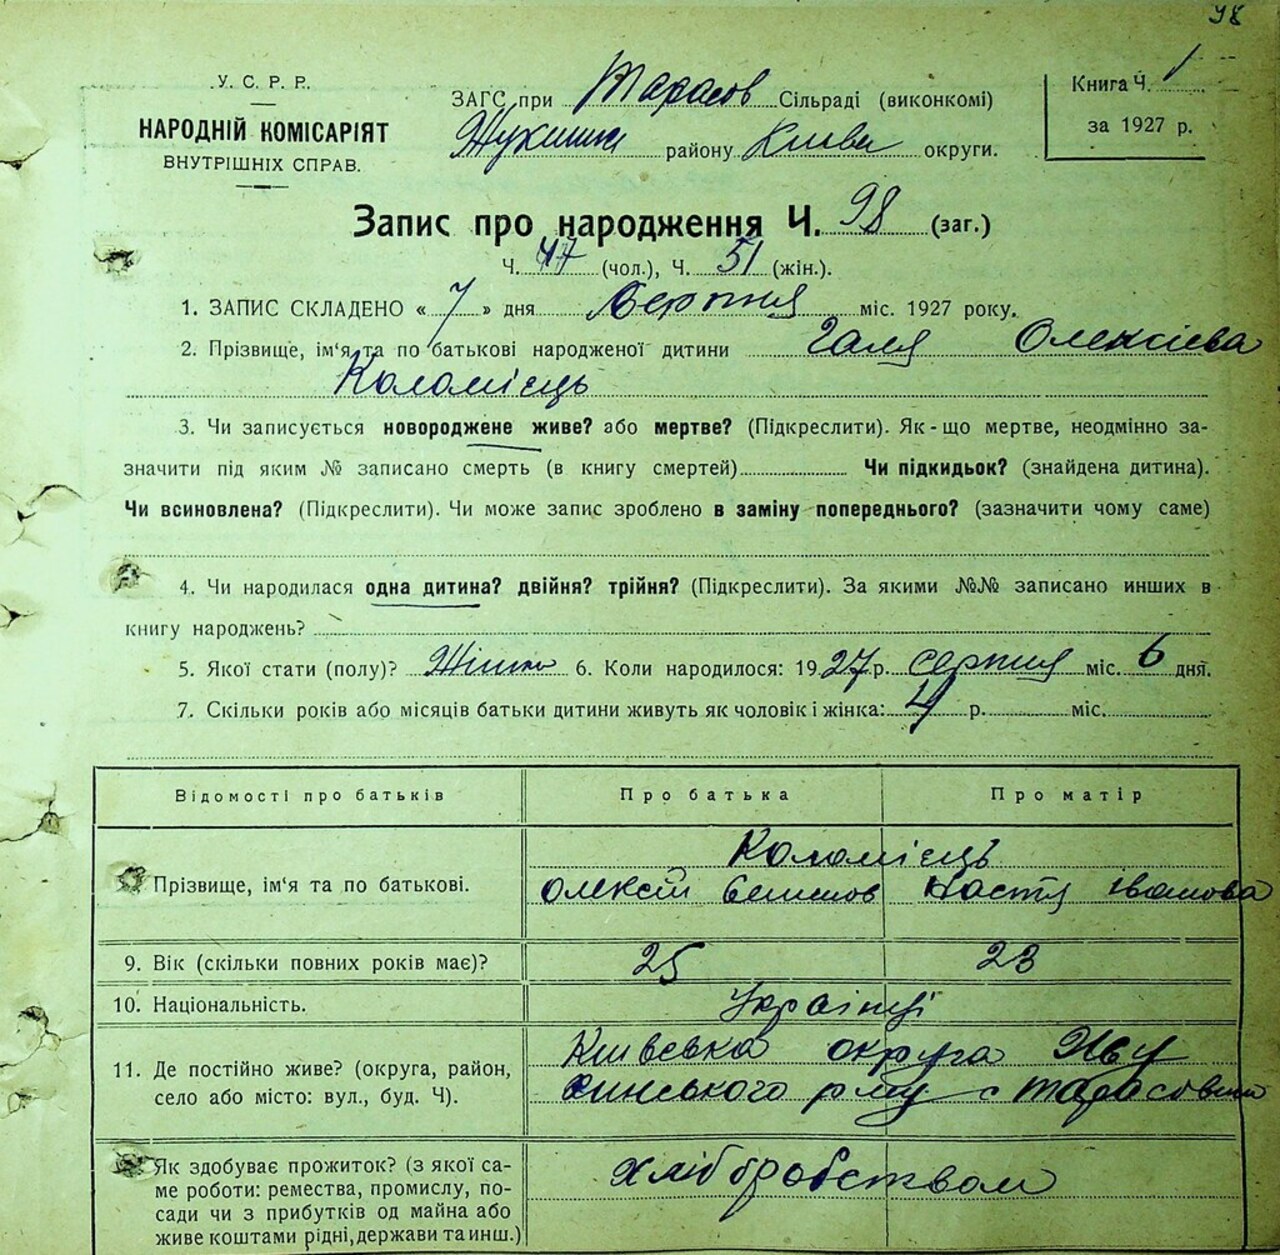 98
У. С. Р. Р.
НАРОДНІЙ КОМІСАРІЯТ
ВНУТРІШНІХ СПРАВ.
ЗАГС при Тарасов Сільраді (виконкомі)
району Києва округи.
Книга Ч. 1
за 1927 р.
Запис про народження Ч. 98 (заг.)
Ч. 47 (чол.), Ч. 51 (жін.).
1. ЗАПИС СКЛАДЕНО « 7 » дня Серпня міс. 1927 року.
2. Прізвище, ім'я та по батькові народженої дитини Галя Олексієва
Коломієць
3. Чи записується новороджене живе? або мертве? (Підкреслити). Як-що мертве, неодмінно за-
значити під яким № записано смерть (в книгу смертей) Чи підкидьок? (знайдена дитина).
Чи всиновлена? (Підкреслити). Чи може запис зроблено в заміну попереднього? (зазначити чому саме)
4. Чи народилася одна дитина? двійня? трійня? (Підкреслити). За якими №№ записано инших в
книгу народжень?
5. Якої стати (полу)? 6. Коли народилося: 1927 р. серпня міс. 6 дня.
7. Скільки років або місяців батьки дитини живуть як чоловік і жінка: 4 р. міс.
Відомості про батьків Про батька Про матір
Коломієць
Прізвище, ім'я та по батькові. Олексій Настя Іванова
9. Вік (скільки повних років має)? 25 23
10. Національність. Українці
11. Де постійно живе? (округа, район,
село або місто: вул., буд. Ч).
Київська округа Жу
кинського р-ну с Тарасовка
Як здобуває прожиток? (з якої са-
ме роботи: ремества, промислу, по-
сади чи з прибутків од майна або
живе коштами рідні, держави та инш.)
хліборобством